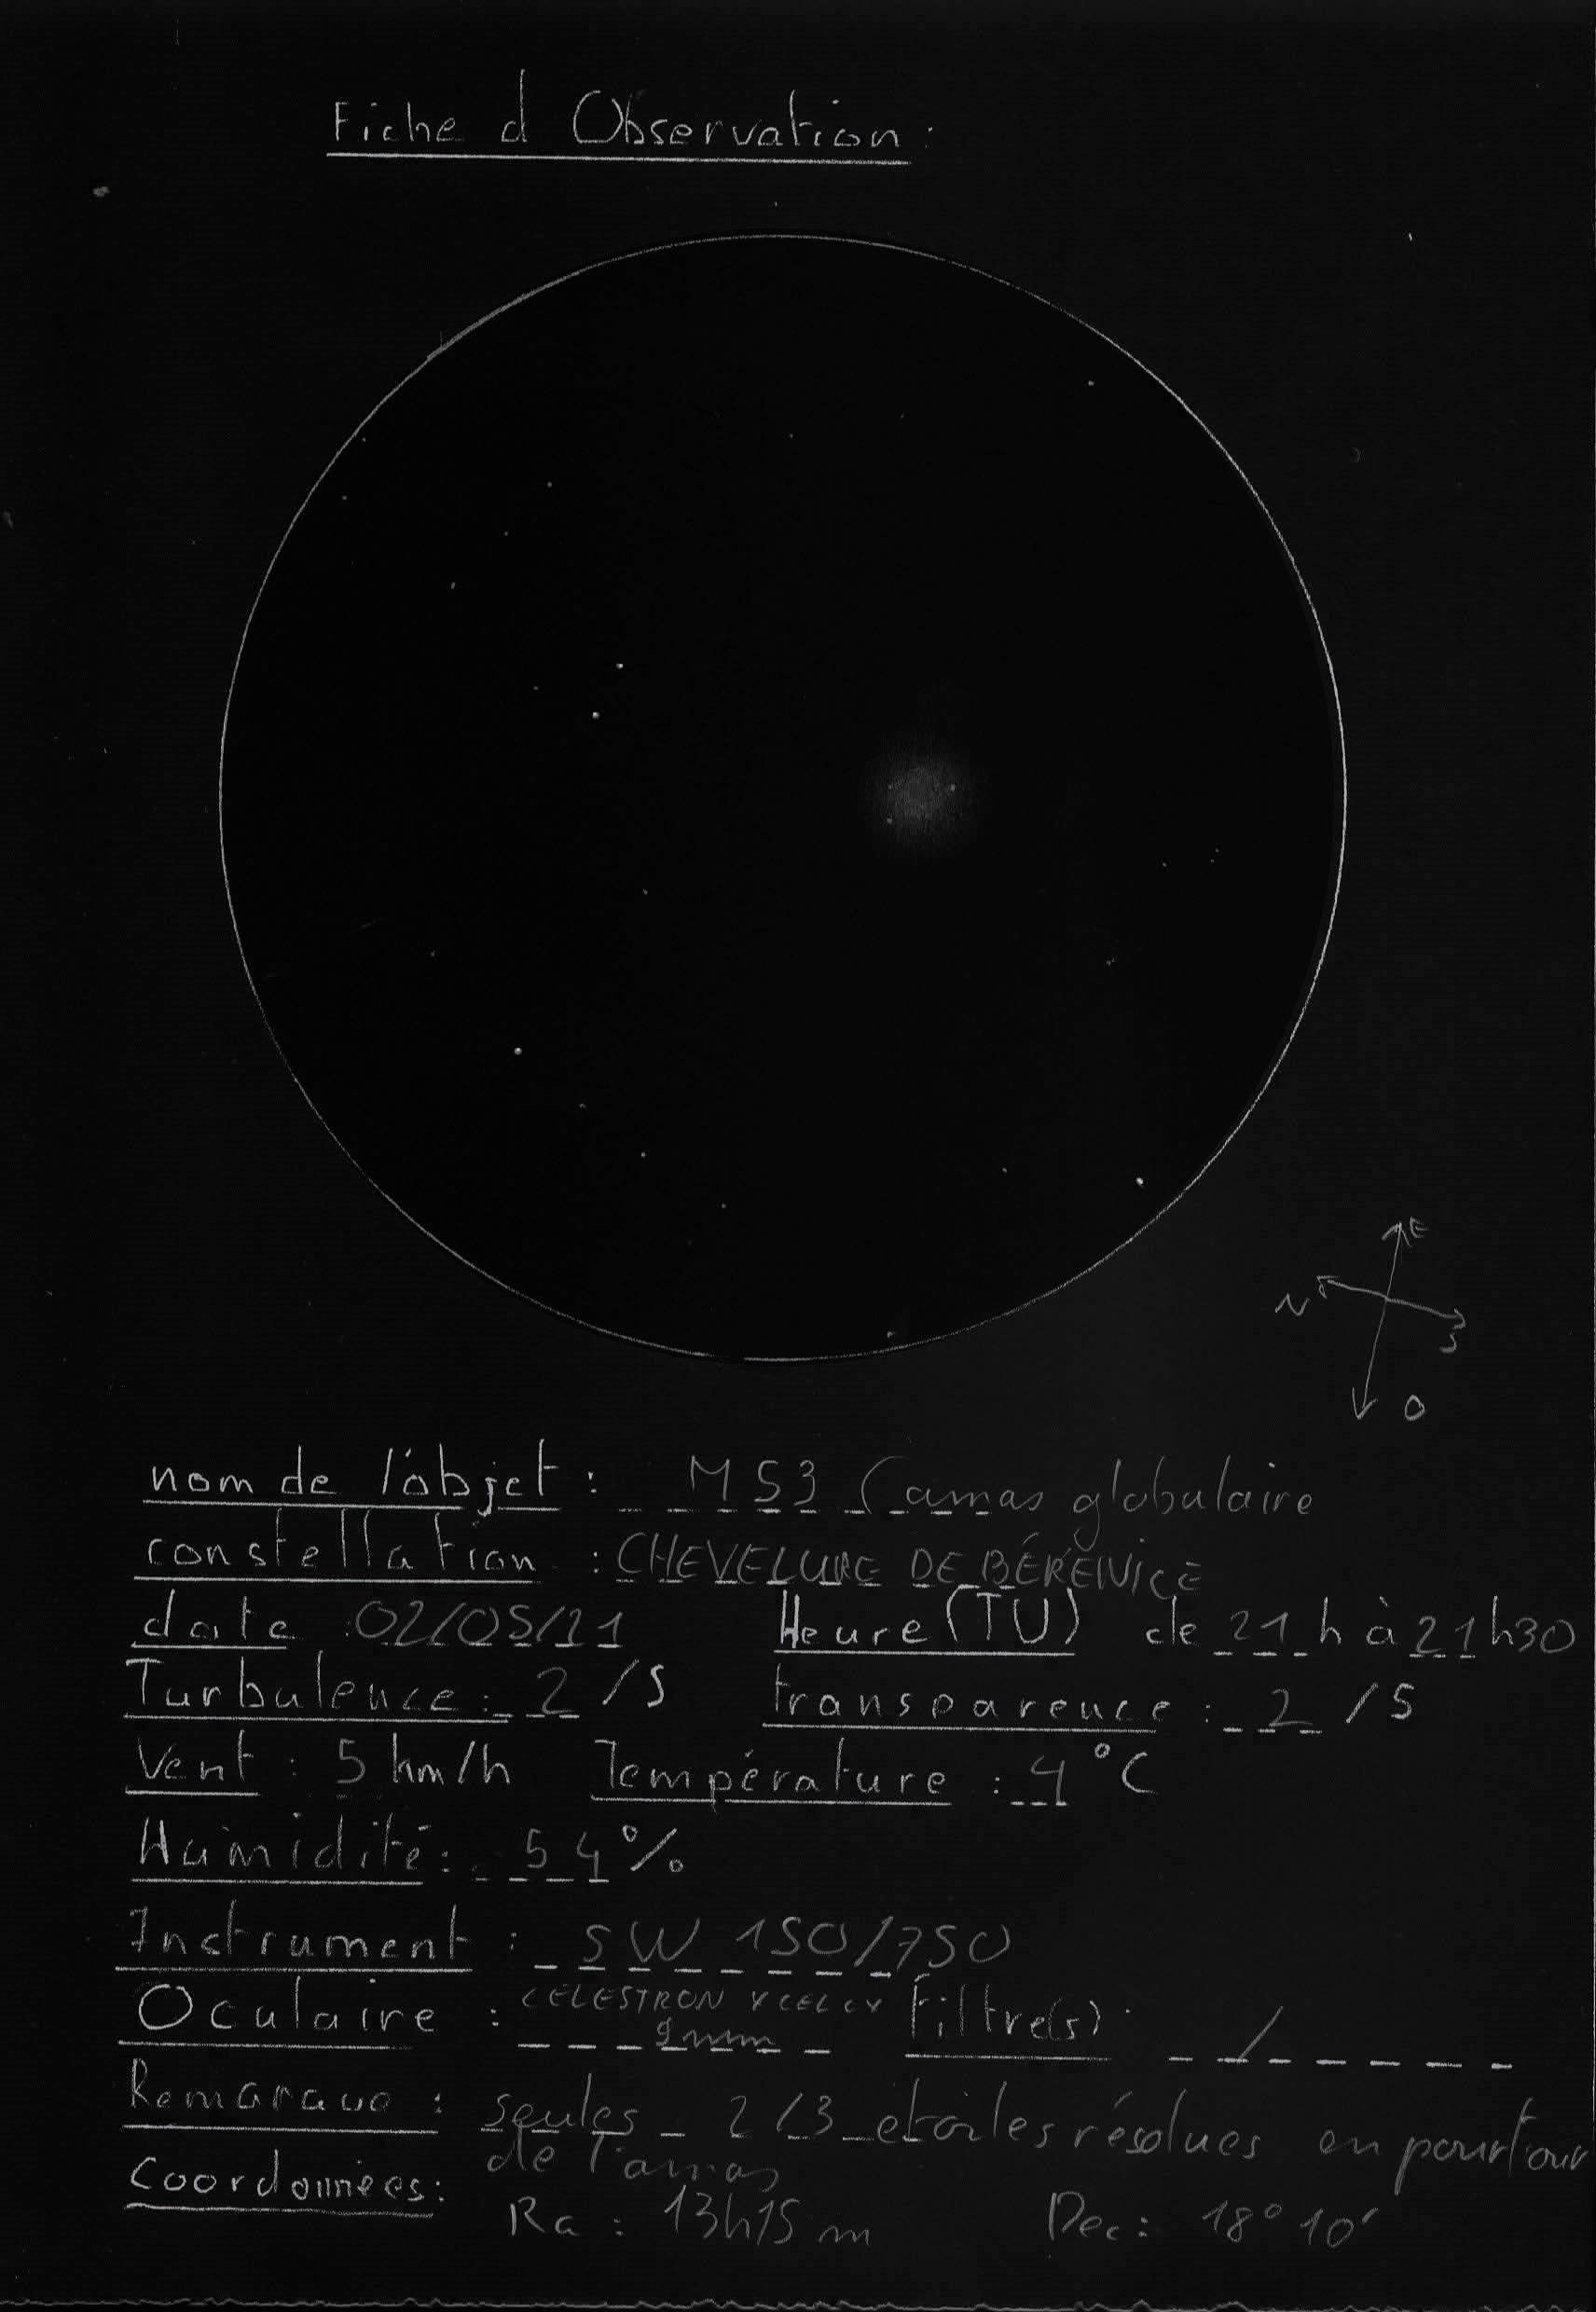 Fiche d Observation:
E
N
S
O
nom de l'objet : M53 (amas globulaire
constellation : CHEVELURE DE BÉRÉNICE
date : 02/05/21 Heure (TU) de 21 h à 21h30
Turbulence : 2 /5 transparence : 2 /5
Vent : 5 km/h Température : 4°C
Humidité : 54%
Instrument : SW 150/750
Oculaire : CELESTRON XCELLX Filtre(s) : /
9mm
Remarque : seules 2/3 etoiles résolues en pourtour
de l'amas
Coordonnées:
Ra : 13h15m Dec : 18° 10'